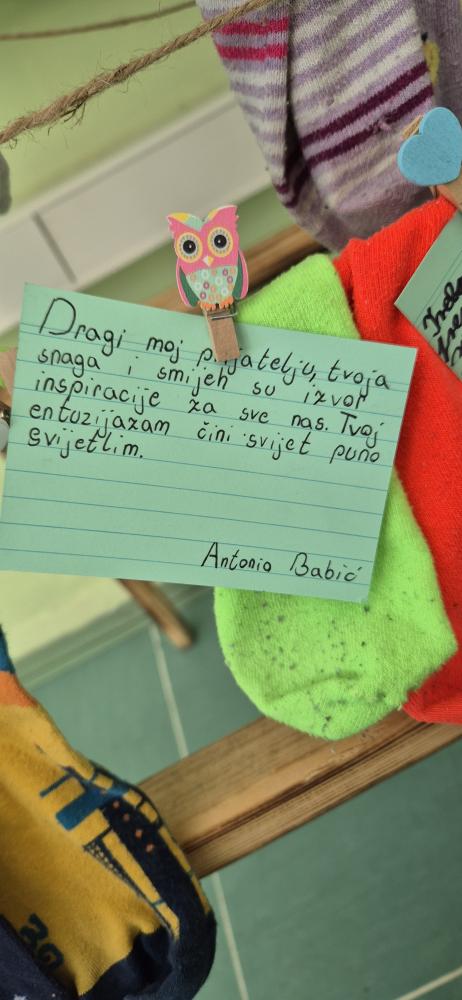 Dragi moj prijatelju, tvoja
snaga i smijeh su izvor
inspiracije za sve nas. Tvoj
entuzijazam čini svijet puno
svijetlim.
Antonio Babić
39